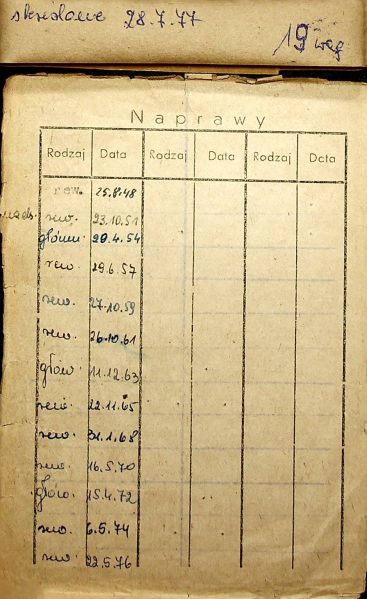 skreślone 28.7.77
19 węg
Naprawy
Rodzaj Data Rodzaj Data Rodzaj Data
rew. 25.8.48
nads. rew. 23.10.51
główn. 29.4.54
rew 29.6.57
rew. 27.10.59
rew. 26.10.61
głów. 11.12.63
rew. 22.11.65
rew. 31.1.68
rew. 16.5.70
głów. 15.4.72
rew. 6.5.74
rew. 22.5.76